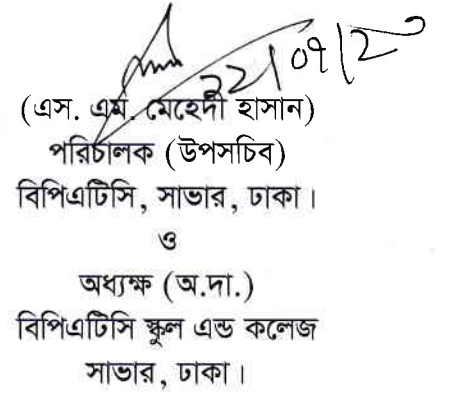 22/07/20
(এস. এম. মেহেদী হাসান)
পরিচালক (উপসচিব)
বিপিএটিসি, সাভার, ঢাকা।
ও
অধ্যক্ষ (অ.দা.)
বিপিএটিসি স্কুল এন্ড কলেজ
সাভার, ঢাকা।